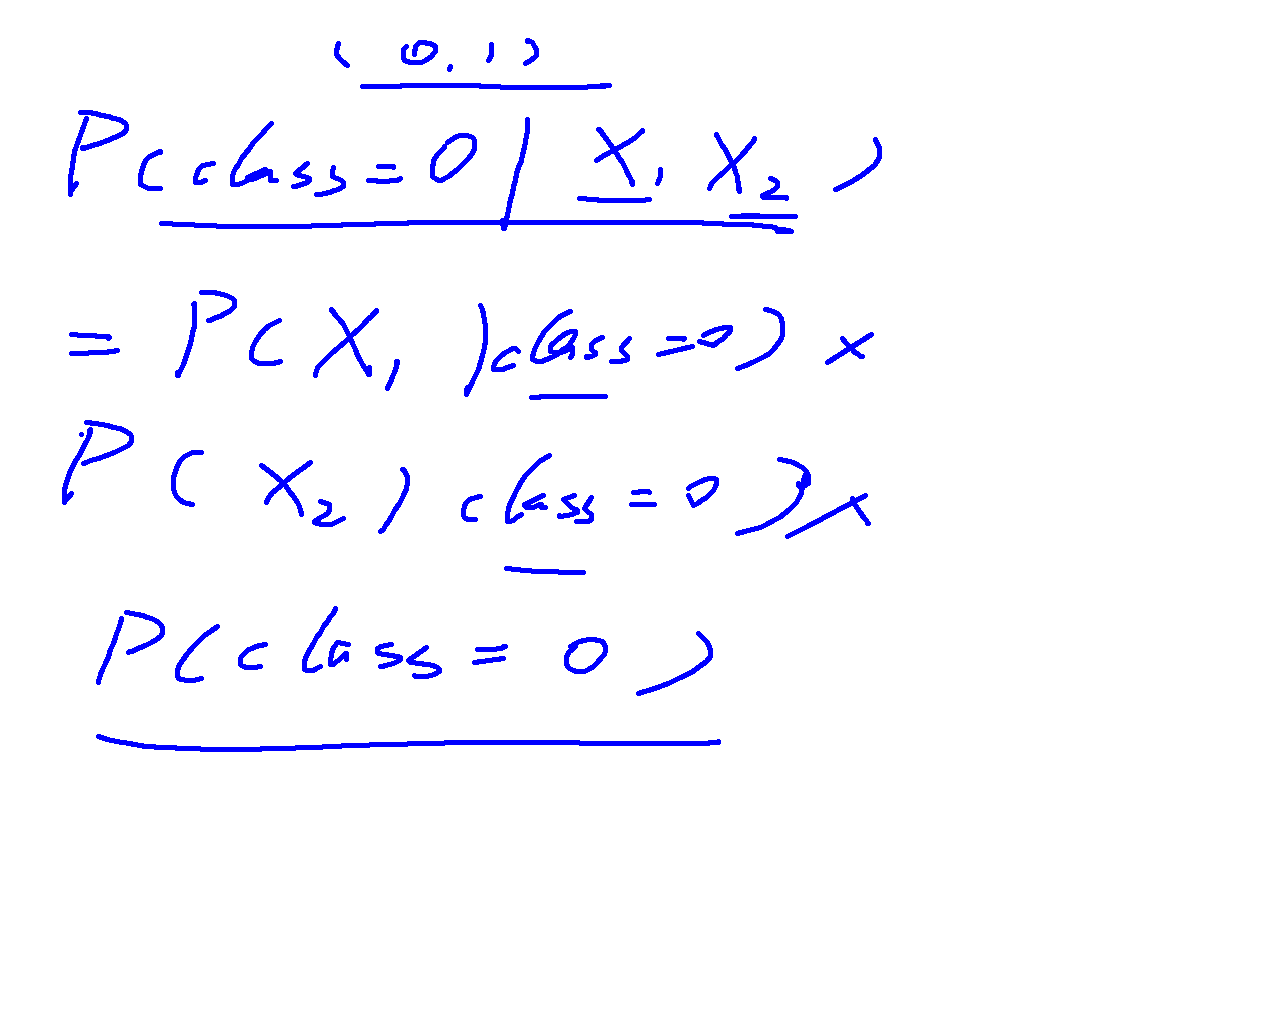 (0,1)
P(class=0|X1 X2)
= P(X1|class=0) x
P(X2|class=0) x
P(class=0)